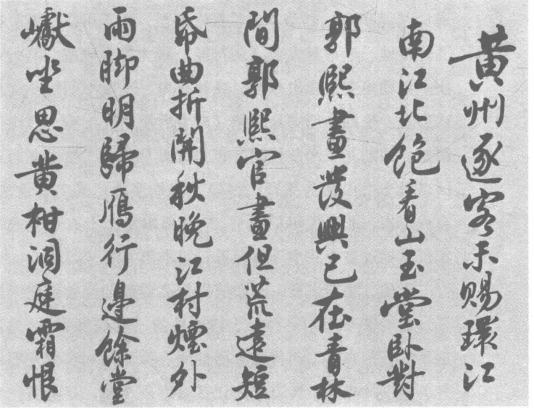 黄州逐客未賜環江
南江北飽看山玉堂卧對
郭熙畫發興已在青林
間郭熙官畫但荒遠短
帋曲折開秋晚江村煙外
雨脚明歸鴈行邊餘疊
巘坐思黄柑洞庭霜恨